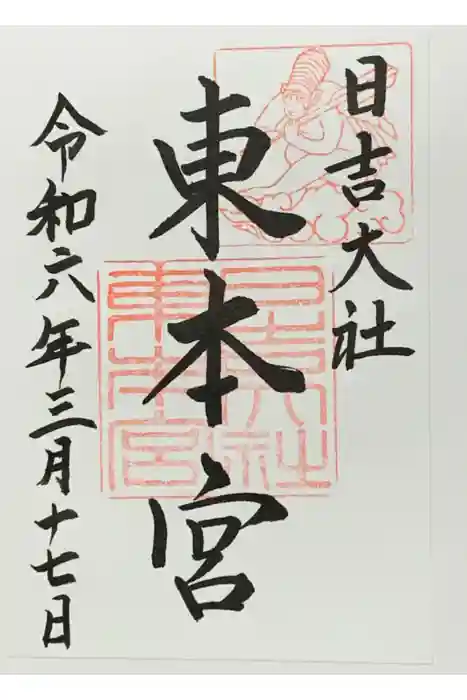 日吉大社
東本宮
日吉大社
東本宮
令和六年三月十七日